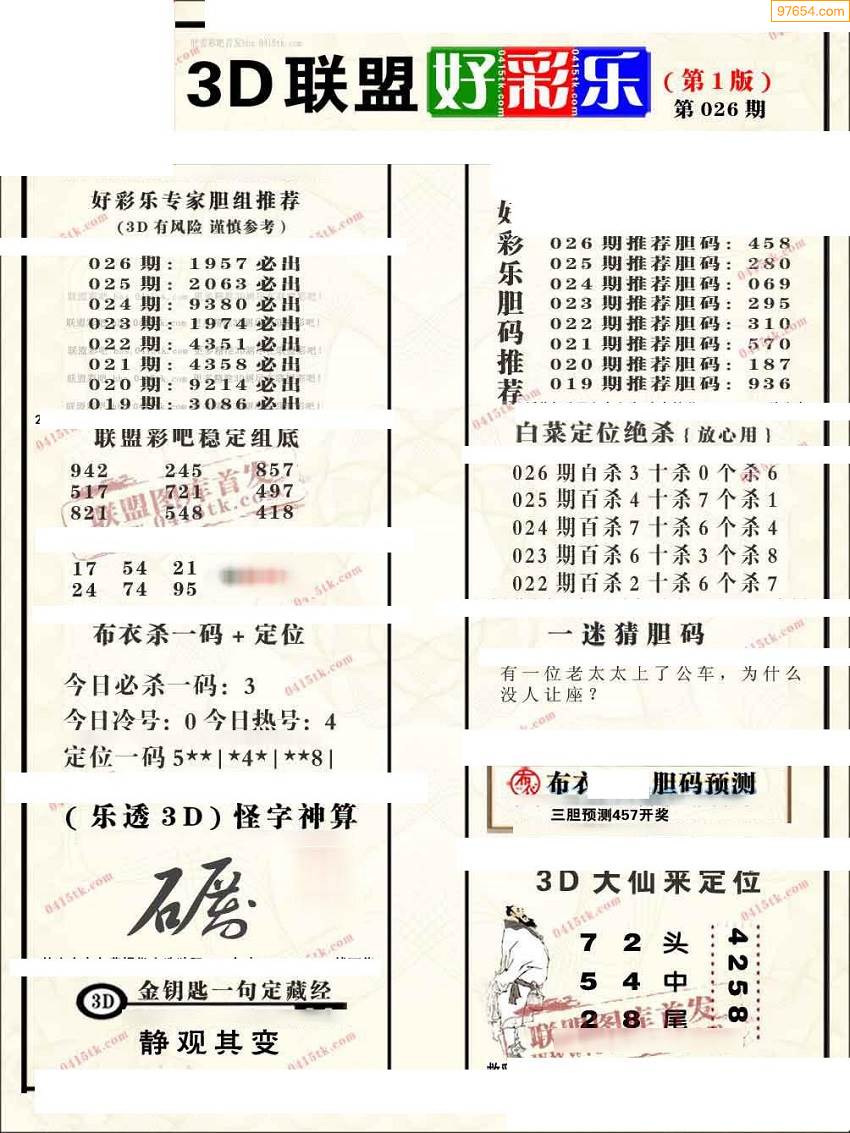 97654.com
3D联盟好彩乐
(第1版)
第026期
好彩乐专家胆组推荐
(3D有风险 谨慎参考)
026期: 1957必出
025期: 2063必出
024期: 9380必出
023期: 1974必出
022期: 4351必出
021期: 4358必出
020期: 9214必出
019期: 3086必出
联盟彩吧稳定组底
942 245 857
517 721 497
821 548 418
17 54 21
24 74 95
布衣杀一码+定位
今日必杀一码: 3
今日冷号: 0 今日热号: 4
定位一码5**|*4*|**8|
(乐透3D)怪字神算
3D
金钥匙一句定藏经
静观其变
好彩乐胆码推荐
026期推荐胆码: 458
025期推荐胆码: 280
024期推荐胆码: 069
023期推荐胆码: 295
022期推荐胆码: 310
021期推荐胆码: 570
020期推荐胆码: 187
019期推荐胆码: 936
白菜定位绝杀{放心用}
026期百杀3十杀0个杀6
025期百杀4十杀7个杀1
024期百杀7十杀6个杀4
023期百杀6十杀3个杀8
022期百杀2十杀6个杀7
一迷猜胆码
有一位老太太上了公车,为什么
没人让座?
布衣 胆码预测
三胆预测457开奖
3D大仙来定位
7 2 头
5 4 中
2 8 尾
4258
联盟图库首发
0415tk.com